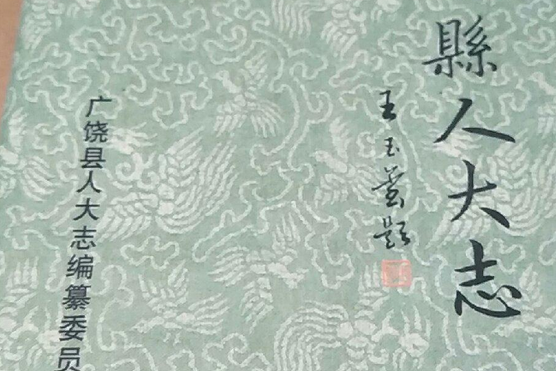 縣人大志
王玉
题
广饶县人大志编纂委员